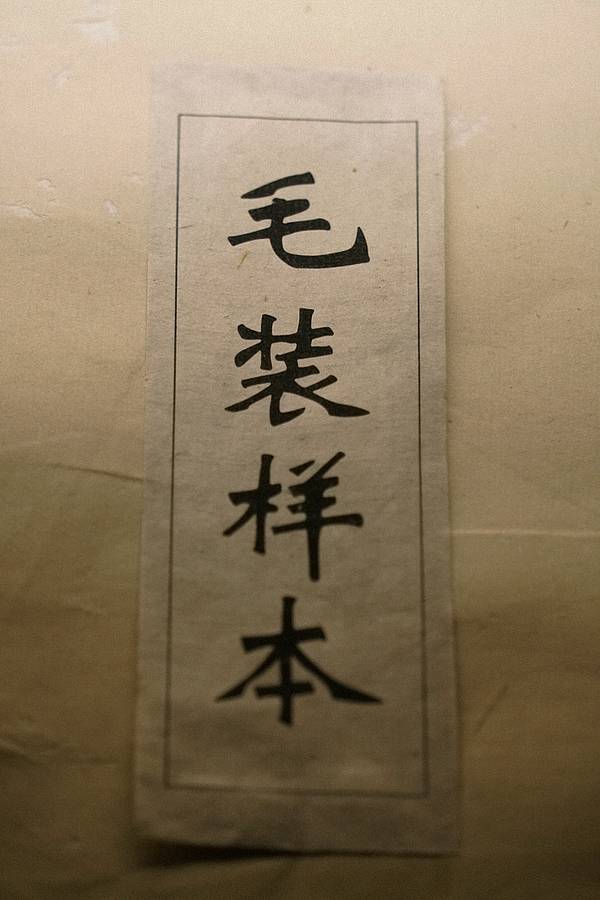 毛装样本